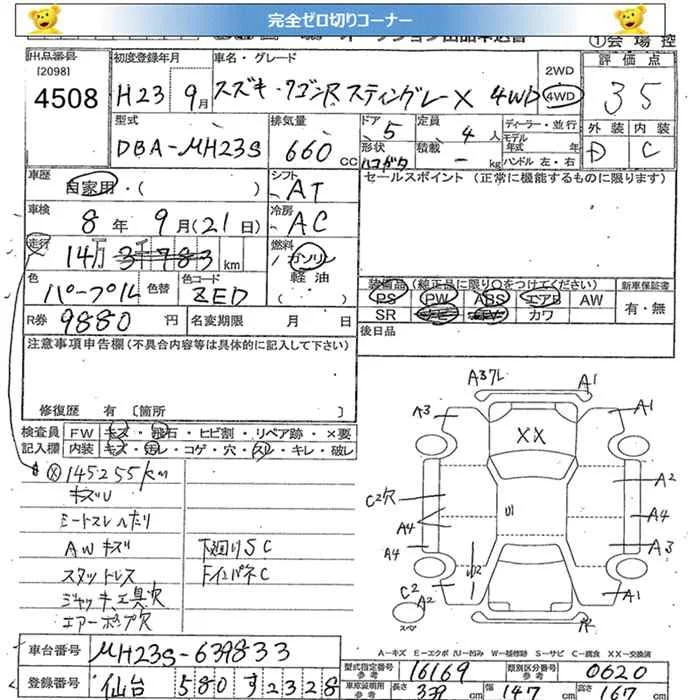 完全ゼロ切りコーナー
①会場控
出品番号
[2098]
4508
初度登録年月
H23 9月
車名・グレード
スズキ・ワゴンR スティングレー X 4WD
2WD
4WD
評価点
3 5
外装 内装
D C
型式
DBA-MH23S
排気量
660 CC
ドア 5
形状
ハコガタ
定員 4 人
積載 - kg
ディーラー・並行
モデル
年式 年
ハンドル 左・右
車歴
自家用・( )
シフト
AT
セールスポイント (正常に機能するものに限ります)
車検
8年 9月(21日)
冷房
AC
走行
14万 3千783 km
燃料
ガソリン
軽油
( )
色
パープル
色替
色コード
ZED
装備品(純正品に限り○をつけてください)
PS PW ABS エアB AW
SR ナビ TV カワ
新車保証書
有・無
R券 9880 円
名変期限 月 日
後日品
注意事項申告欄(不具合内容等は具体的に記入して下さい)
修復歴 有 [箇所 ]
検査員 FW キズ・飛石・ヒビ割・リペア跡・×要
記入欄 内装 キズ・汚レ・コゲ・穴・スレ・キレ・破レ
145255km
キズU
シートスレ ヘたり
AWキズ
スタットレス
ジャッキ、工具欠
エアーポンプ欠
下廻りSC
FインパネC
A37L A1
A3 A1
XX
A2
C2欠
A4 A4
A4 A3
U1
U2
C2 A2 A1
スペア
A-キズ E-エクボ U-凹み W-補修跡 S-サビ C-腐食 XX-交換済
車台番号 MH23S-639833
登録番号 仙台 580 す 2328
型式指定番号
参考
16169
類別区分番号
参考
0620
車庫証明用
参考
長さ 339 cm 幅 147 cm 高さ 167 cm